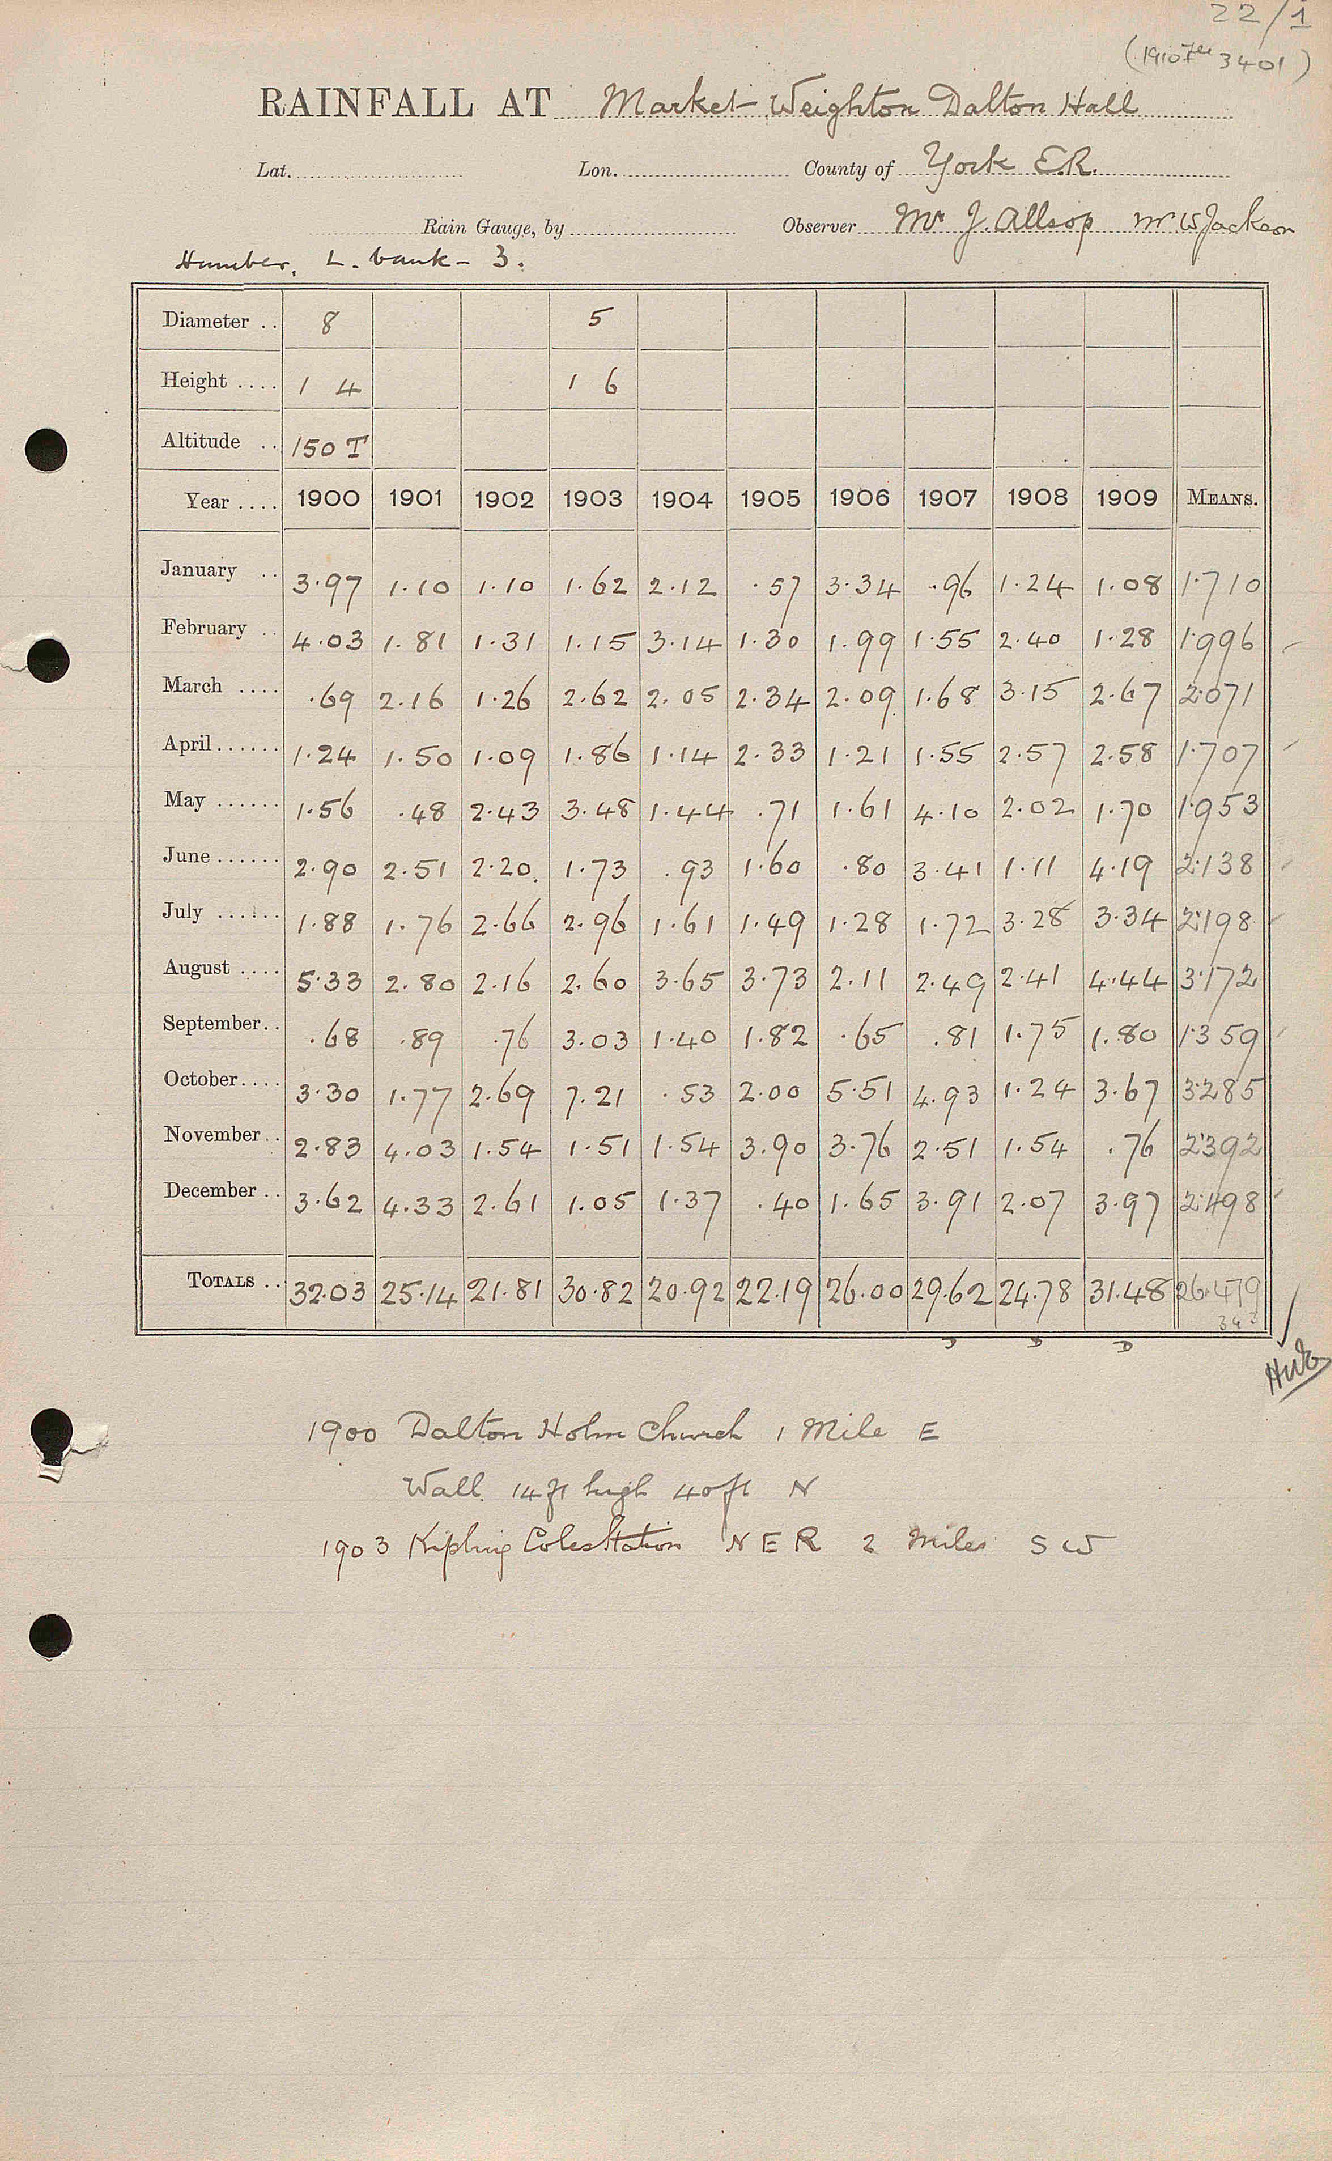 22/1
(1910 Feb 3401)
RAINFALL AT Market Weighton Dalton Hall
Lat. Lon. County of York E.R.
Rain Gauge, by Observer Mr J. Allsop Mr W Jackson
Humber, L. bank - 3.
Diameter .. 8 5
Height .... 1 4 1 6
Altitude .. 150 T
Year .... 1900 1901 1902 1903 1904 1905 1906 1907 1908 1909 MEANS.
January .. 3.97 1.10 1.10 1.62 2.12 .57 3.34 .96 1.24 1.08 1.710
February .. 4.03 1.81 1.31 1.15 3.14 1.30 1.99 1.55 2.40 1.28 1.996
March .... .69 2.16 1.26 2.62 2.05 2.34 2.09 1.68 3.15 2.67 2.071
April ...... 1.24 1.50 1.09 1.86 1.14 2.33 1.21 1.55 2.57 2.58 1.707
May ...... 1.56 .48 2.43 3.48 1.44 .71 1.61 4.10 2.02 1.70 1.953
June ...... 2.90 2.51 2.20 1.73 .93 1.60 .80 3.41 1.11 4.19 2.138
July ...... 1.88 1.76 2.66 2.96 1.61 1.49 1.28 1.72 3.28 3.34 2.198
August .... 5.33 2.80 2.16 2.60 3.65 3.73 2.11 2.49 2.41 4.44 3.172
September .. .68 .89 .76 3.03 1.40 1.82 .65 .81 1.75 1.80 1.359
October .... 3.30 1.77 2.69 7.21 .53 2.00 5.51 4.93 1.24 3.67 3.285
November .. 2.83 4.03 1.54 1.51 1.54 3.90 3.76 2.51 1.54 .76 2.392
December .. 3.62 4.33 2.61 1.05 1.37 .40 1.65 3.91 2.07 3.97 2.498
TOTALS .. 32.03 25.14 21.81 30.82 20.92 22.19 26.00 29.62 24.78 31.48 26.479
D D D
1900 Dalton Holm Church 1 Mile E
Wall 14 ft high 40 ft N
1903 Kipling Cotes Station N E R 2 Miles S W